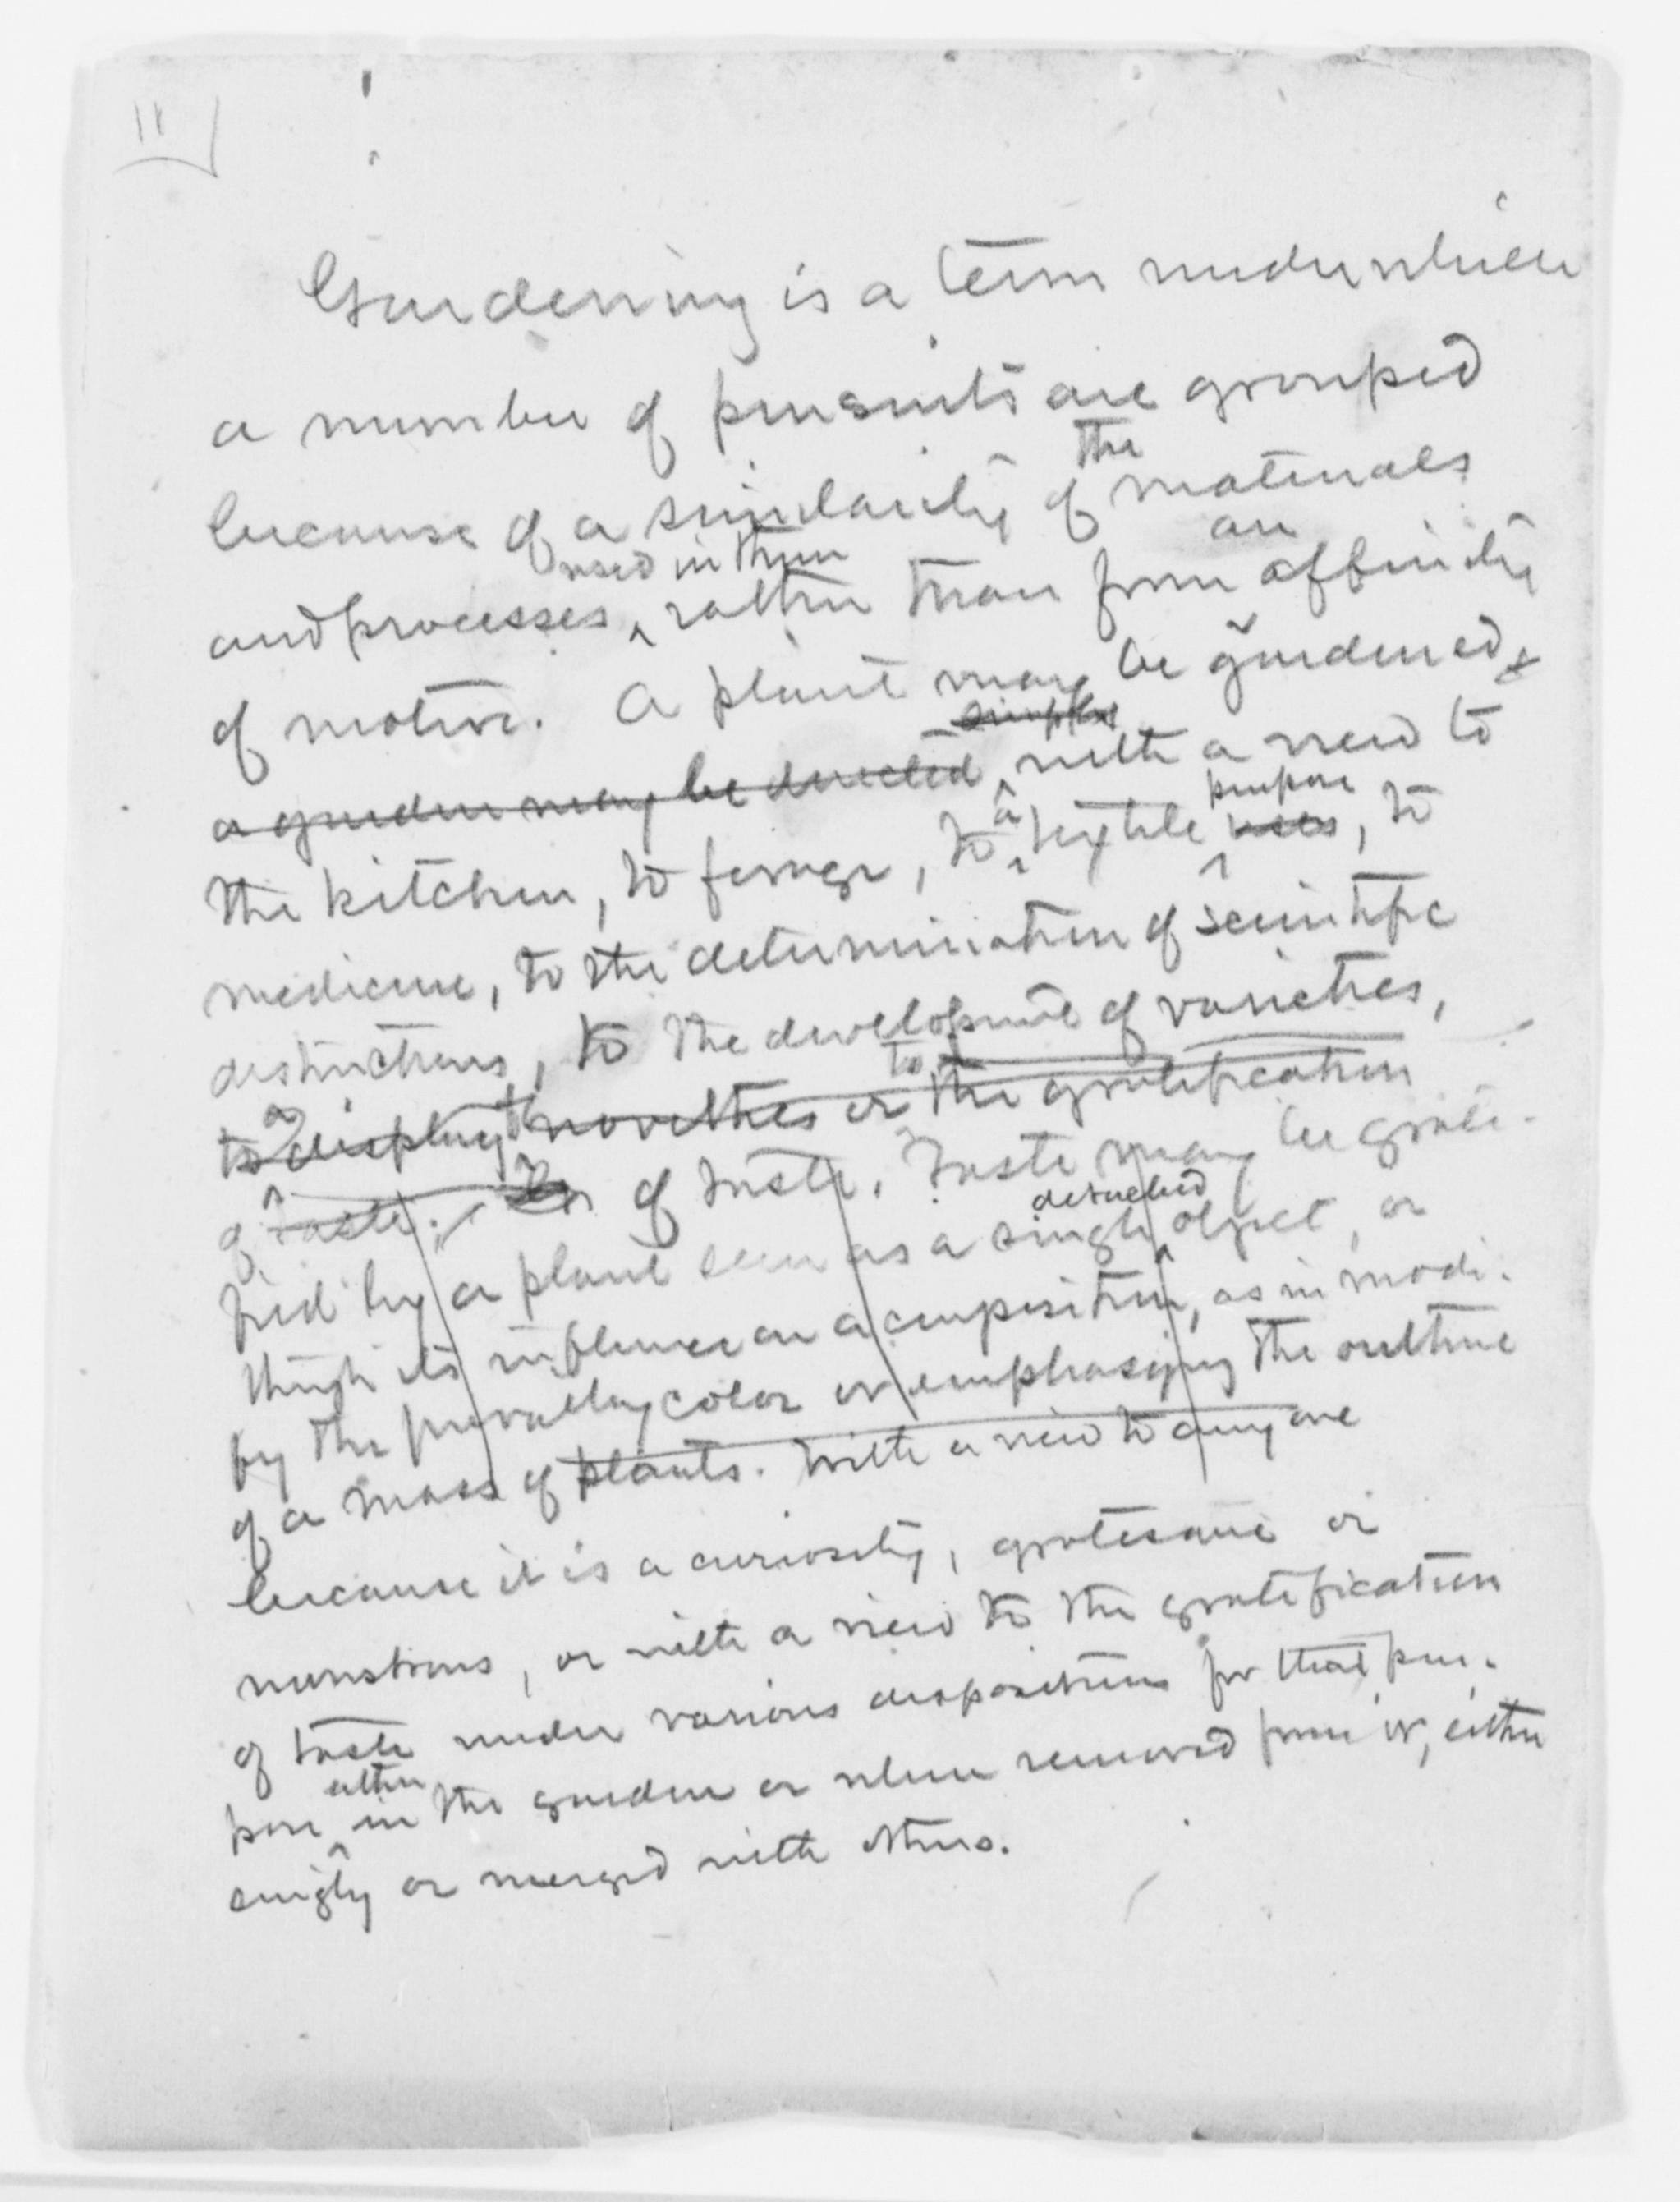 11
Gardening is a term under which
a number of pursuits are grouped
because of a similarity of the materials
and processes used in them rather than from an affinity
of motive. A plant may be gardened,
a garden may be directed simply with a view to
the kitchen, to forage, to a textile uses purpose, to
medicine, to the determination of scientific
distinctions, to the development of varieties,
to display novelties or to the gratification
of taste. of taste. Taste may be grati-
fied by a plant seen as a single detached object, or
through its influence on a composition, as in modi-
fy the prevailing color or emphasizing the outline
of a mass of plants. With a view to any one
because it is a curiosity, grotesque or
monstrous, or with a view to the gratification
of taste under various dispositions for that pur-
pose either in the garden or when removed from it, either
singly or merged with others.